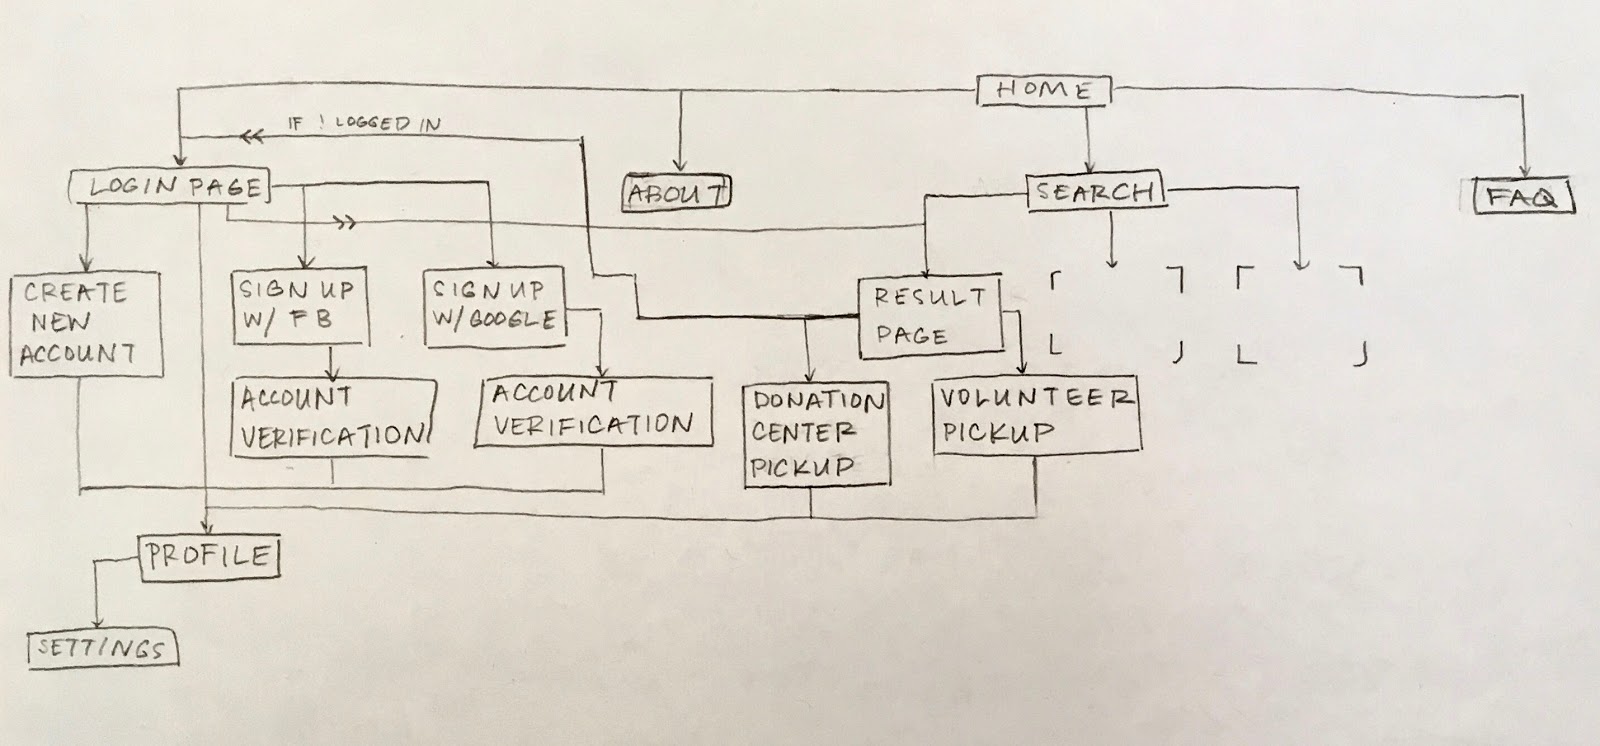 HOME
IF ! LOGGED IN
LOGIN PAGE
ABOUT
SEARCH
FAQ
CREATE
NEW
ACCOUNT
SIGN UP
W/ FB
SIGN UP
W/ GOOGLE
RESULT
PAGE
ACCOUNT
VERIFICATION
ACCOUNT
VERIFICATION
DONATION
CENTER
PICKUP
VOLUNTEER
PICKUP
PROFILE
SETTINGS